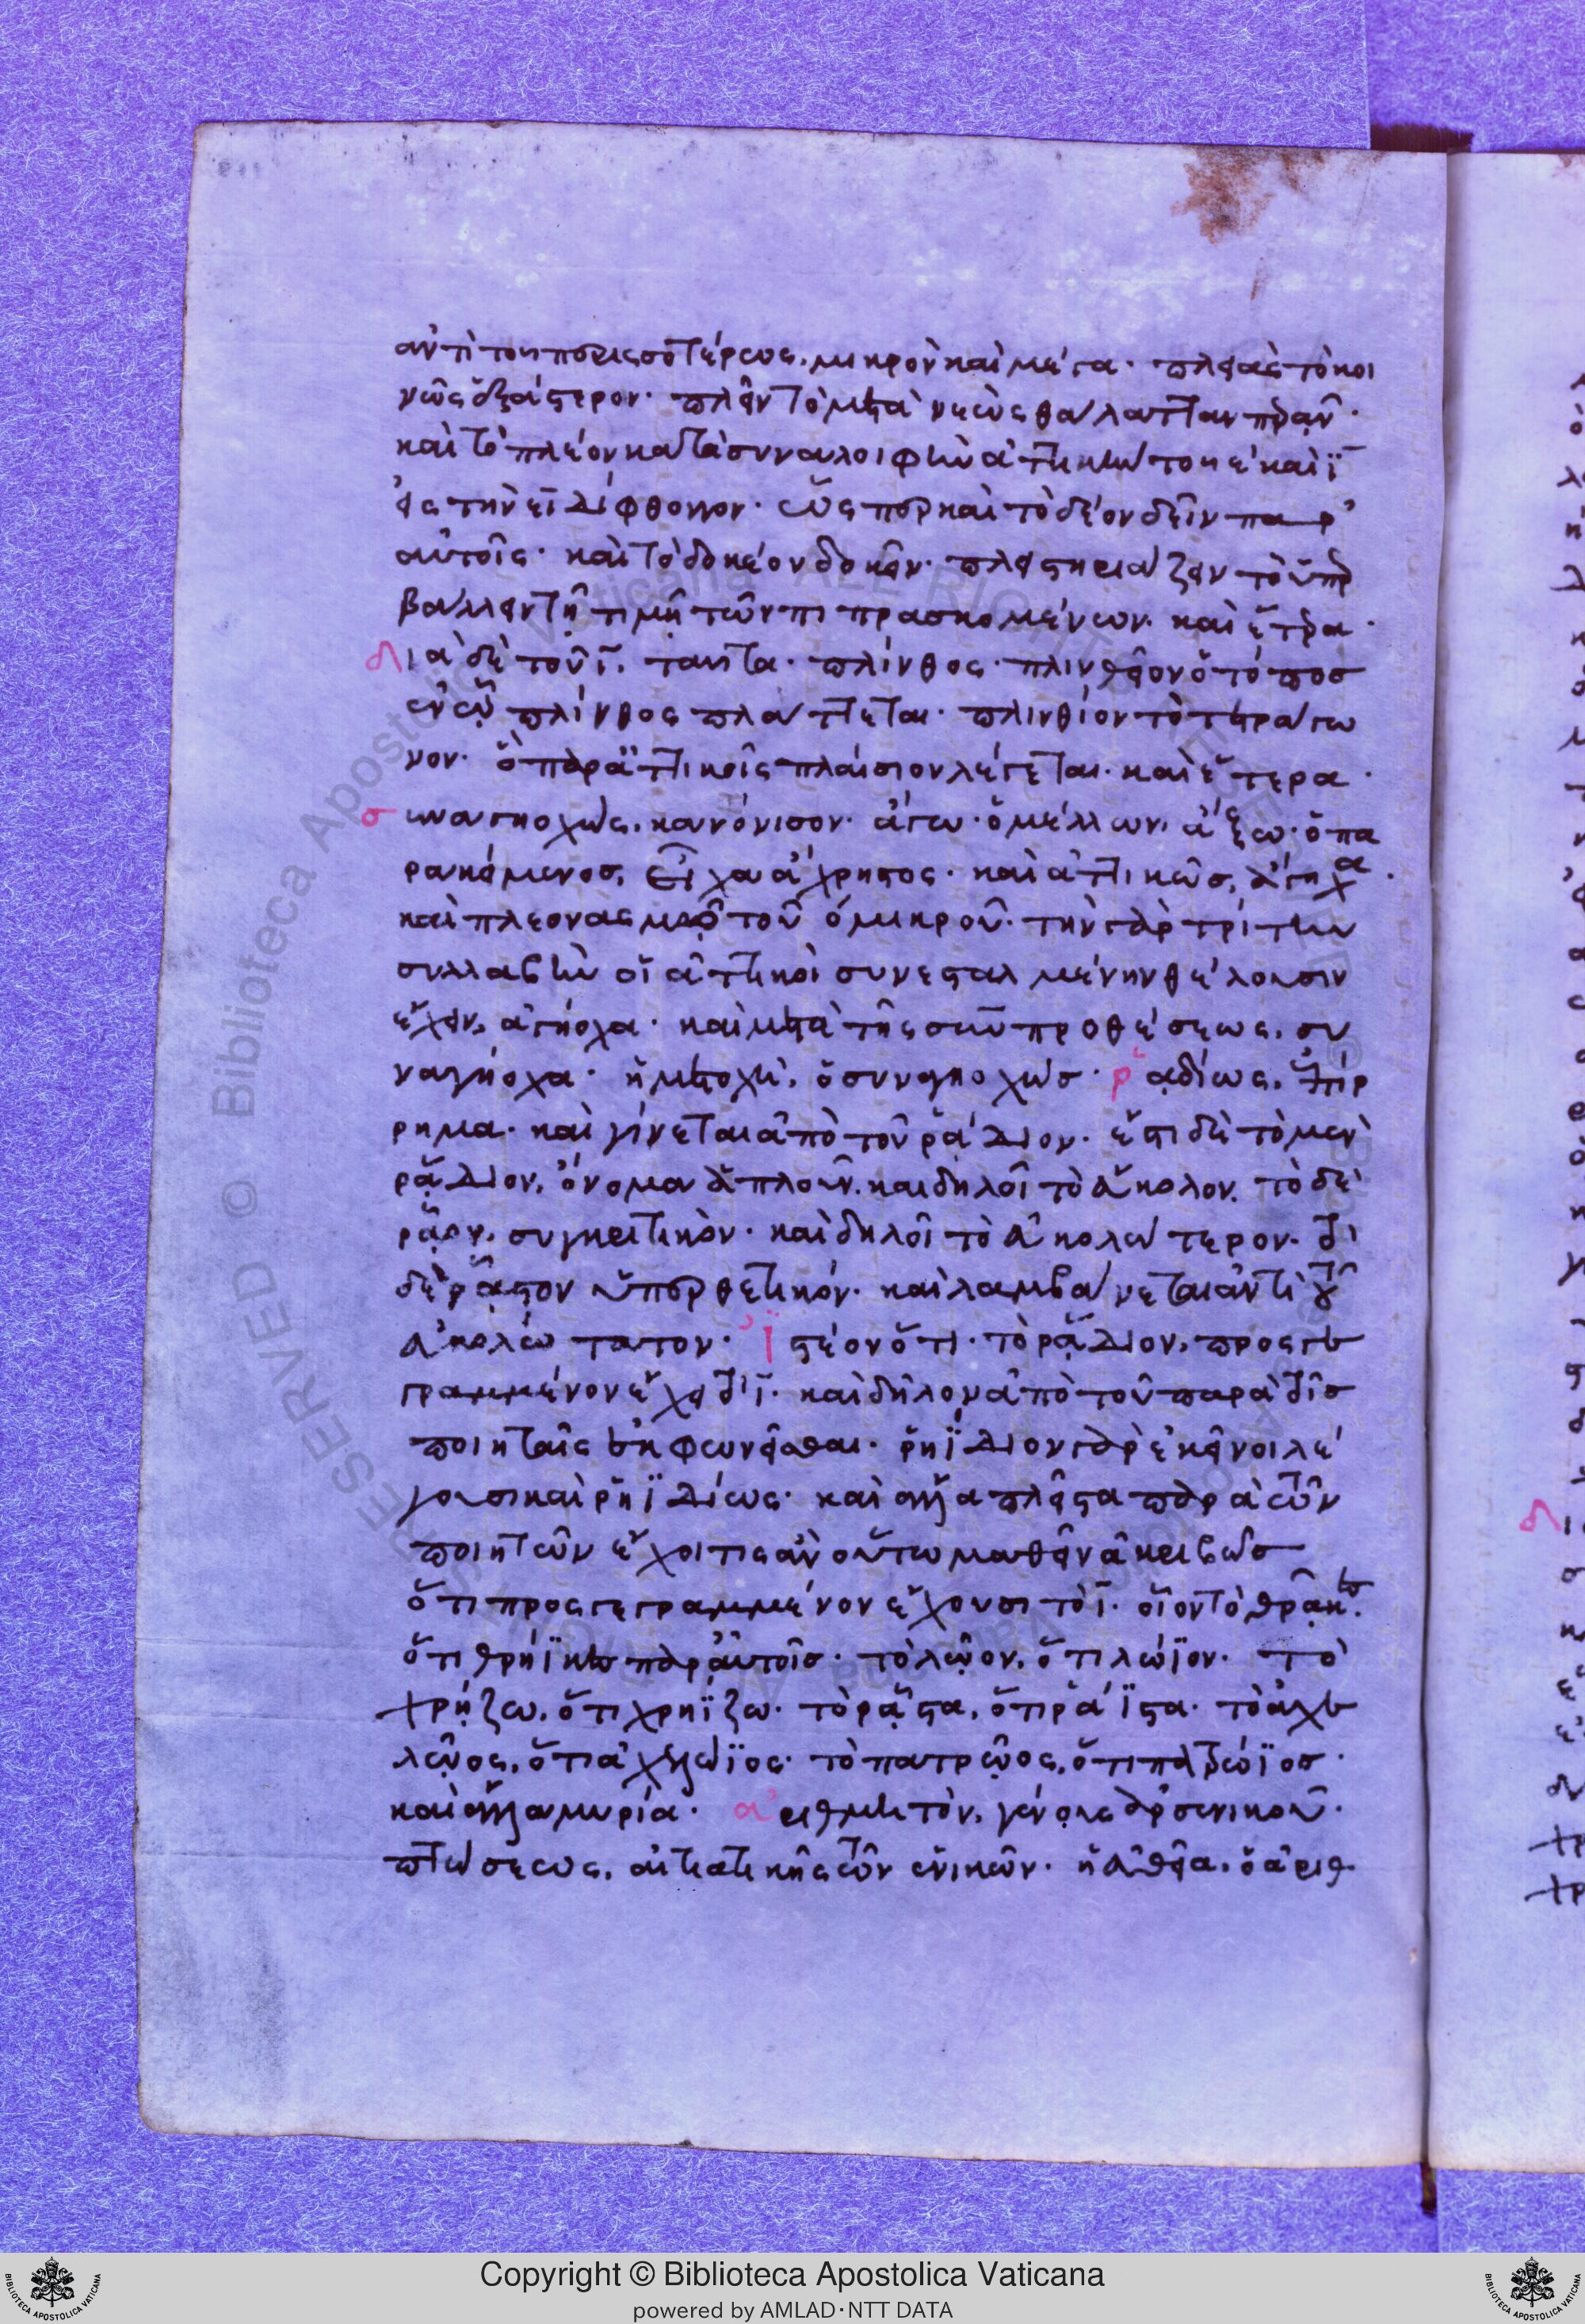 ἀντὶ τοῦ περισσοτέρως. μικρὸν καὶ μέγα. πλείας τὸ κοι
νῶς ἑξάστερον. πλεῖν τὸ μετὰ νεὼς θάλατταν περᾶν.
καὶ τὸ πλέον κατὰ συναλοιφὴν ἀττικὴν τοῦ ε καὶ ϊ
εἰς τὴν ει δίφθογγον. ὥσπερ καὶ τὸ δέον δεῖν παρ'
αὐτοῖς. καὶ τὸ δοκέον δοκεῖν. πλειστηριάζειν τὸ ὑπερ
βάλλειν τῇ τιμῇ τῶν πιπρασκομένων. καὶ ἕτερα.
Διὰ δὲ τοῦ ϊ, ταῦτα. πλίνθος. πλινθεῖον ὁ τόπος
ἐν ᾧ πλίνθος πλάττεται. πλινθίον τὸ τετράγω
νον. ὃ παρ' ἀττικοῖς πλαίσιον λέγεται. καὶ ἕτερα.
συναγηοχὼς, κανόνισον. ἄγω. ὁ μέλλων, ἄξω. ὁ πα
ρακείμενος, ἦχα ἄχρηστος. καὶ ἀττικῶς, ἀγήχα.
καὶ πλεονασμῷ τοῦ ὀμικροῦ. τὴν γὰρ τρίτην
συλλαβὴν οἱ ἀττικοὶ συνεσταλμένην θέλουσιν
ἔχειν, ἀγήοχα. καὶ μετὰ τῆς σὺν προθέσεως, συ
ναγήοχα. ἡ μετοχὴ, ὁ συναγηοχὼς. ῥαδίως, ἐπίρ
ρημα. καὶ γίνεται ἀπὸ τοῦ ῥᾴδιον. ἔστι δὲ τὸ μὲν
ῥᾴδιον, ὄνομα ἁπλοῦν. καὶ δηλοῖ τὸ εὔκολον. τὸ δὲ
ῥᾷον, συγκριτικὸν. καὶ δηλοῖ τὸ εὐκολώτερον. τὸ
δὲ ῥᾷστον ὑπερθετικόν. καὶ λαμβάνεται ἀντὶ τοῦ
εὐκολώτατον. ἰστέον ὅτι. τὸ ῥᾴδιον, προσγε
γραμμένον ἔχει τὸ ϊ. καὶ δῆλον ἀπὸ τοῦ παρὰ τοῖς
ποιηταῖς ἐκφωνεῖσθαι. ῥηΐδιον γὰρ ἐκεῖνοι λέ
γουσι καὶ ῥηϊδίως. καὶ ἄλλα πλεῖστα παρὰ τῶν
ποιητῶν ἔχοι τις ἂν οὕτω μαθεῖν ἀκριβῶς
ὅτι προσγεγραμμένον ἔχουσι τὸ ϊ. οἷον τὸ θρᾷκες.
ὅτι θρήϊκες παρ' αὐτοῖς. τὸ λῷον, ὅτι λώϊον. τὸ
χρῄζω, ὅτι χρηΐζω. τὸ ῥᾷστα, ὅτι ῥάϊστα. τὸ ἀχελ
λῷος, ὅτι ἀχελώϊος. τὸ πατρῷος, ὅτι πατρώϊος.
καὶ ἄλλα μυρία. ἀριθμητὸν, γένους ἀρσενικοῦ.
πτώσεως, αἰτιατικῆς τῶν ἑνικῶν. ἡ εὐθεῖα, ὁ ἀριθ
Copyright © Biblioteca Apostolica Vaticana
powered by AMLAD·NTT DATA